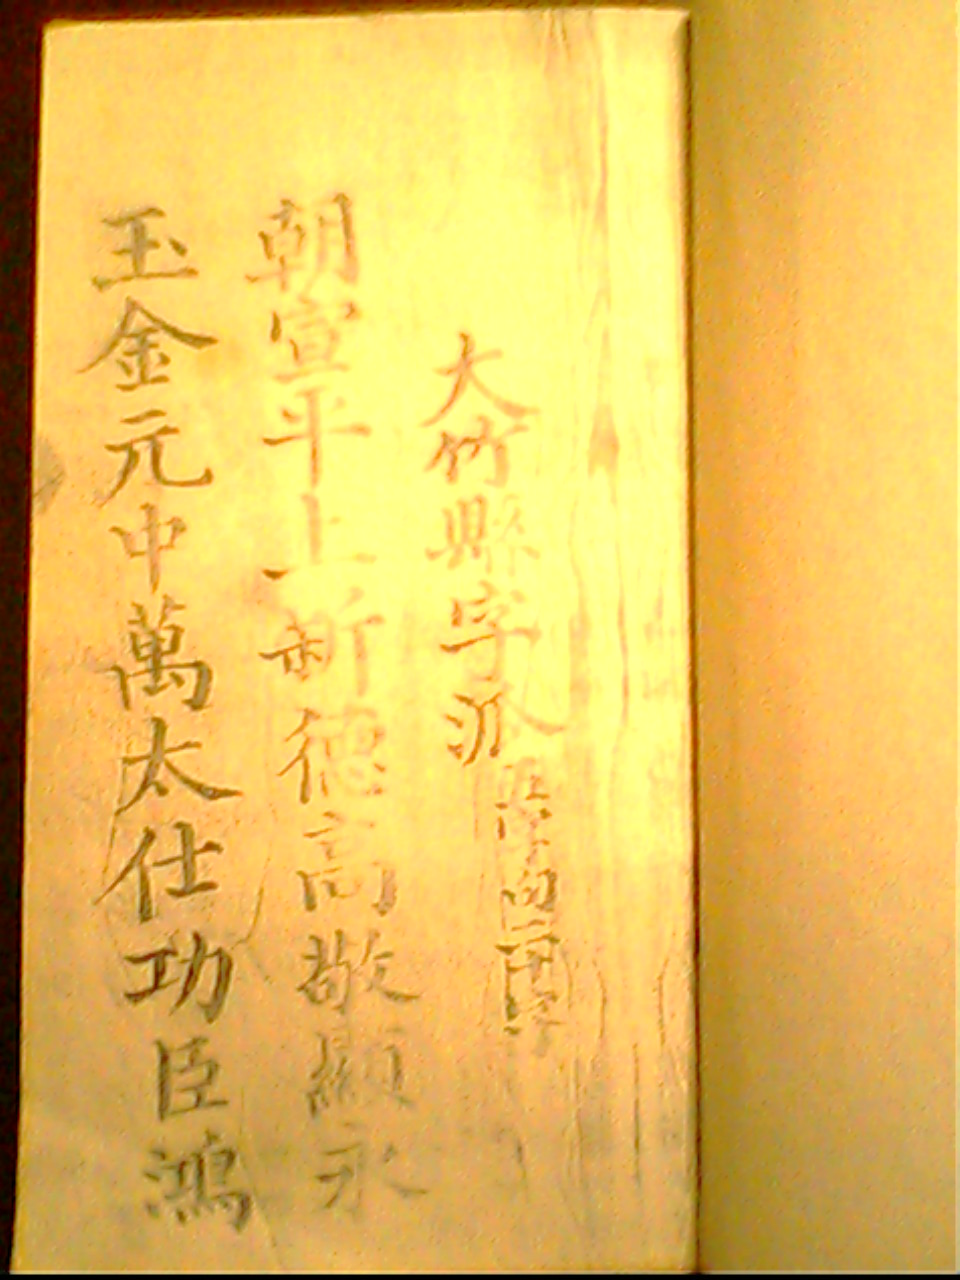 大竹縣字派
朝宣平上新德高敬顯永
玉金元中萬太仕功臣鴻